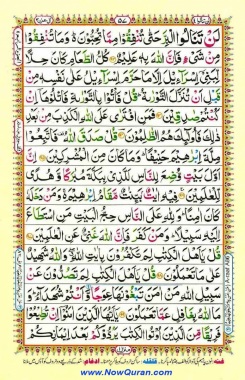 لَنْ تَنَالُوا الْبِرَّ حَتّٰى تُنْفِقُوْا مِمَّا تُحِبُّوْنَ ۬ وَمَا تُنْفِقُوْا
مِنْ شَىْءٍ فَاِنَّ اللّٰهَ بِهٖ عَلِيْمٌ كُلُّ الطَّعَامِ كَانَ حِلًّا
لِّبَنِىْٓ اِسْرَآءِيْلَ اِلَّا مَا حَرَّمَ اِسْرَآءِيْلُ عَلٰى نَفْسِهٖ مِنْ
قَبْلِ اَنْ تُنَزَّلَ التَّوْرٰىةُ قُلْ فَاْتُوْا بِالتَّوْرٰىةِ فَاتْلُوْهَآ اِنْ
كُنْتُمْ صٰدِقِيْنَ فَمَنِ افْتَرٰى عَلَى اللّٰهِ الْكَذِبَ مِنْۢ بَعْدِ
ذٰلِكَ فَاُولٰٓئِكَ هُمُ الظّٰلِمُوْنَ قُلْ صَدَقَ اللّٰهُ فَاتَّبِعُوْا
مِلَّةَ اِبْرٰهِيْمَ حَنِيْفًا وَمَا كَانَ مِنَ الْمُشْرِكِيْنَ اِنَّ
اَوَّلَ بَيْتٍ وُّضِعَ لِلنَّاسِ لَلَّذِىْ بِبَكَّةَ مُبٰرَكًا وَّهُدًى
لِّلْعٰلَمِيْنَ فِيْهِ اٰيٰتٌۢ بَيِّنٰتٌ مَّقَامُ اِبْرٰهِيْمَ وَمَنْ دَخَلَهٗ
كَانَ اٰمِنًا وَلِلّٰهِ عَلَى النَّاسِ حِجُّ الْبَيْتِ مَنِ اسْتَطَاعَ
اِلَيْهِ سَبِيْلًا وَمَنْ كَفَرَ فَاِنَّ اللّٰهَ غَنِىٌّ عَنِ الْعٰلَمِيْنَ
قُلْ يٰٓاَهْلَ الْكِتٰبِ لِمَ تَكْفُرُوْنَ بِاٰيٰتِ اللّٰهِ وَاللّٰهُ شَهِيْدٌ
عَلٰى مَا تَعْمَلُوْنَ قُلْ يٰٓاَهْلَ الْكِتٰبِ لِمَ تَصُدُّوْنَ عَنْ
سَبِيْلِ اللّٰهِ مَنْ اٰمَنَ تَبْغُوْنَهَا عِوَجًا وَّاَنْتُمْ شُهَدَآءُ وَمَا
اللّٰهُ بِغَافِلٍ عَمَّا تَعْمَلُوْنَ يٰٓاَيُّهَا الَّذِيْنَ اٰمَنُوْٓا اِنْ تُطِيْعُوْا
فَرِيْقًا مِّنَ الَّذِيْنَ اُوْتُوا الْكِتٰبَ يَرُدُّوْكُمْ بَعْدَ اِيْمَانِكُمْ
www.NowQuran.com